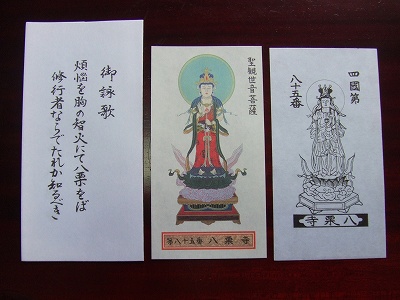 御詠歌
煩悩を胸の智火にて八栗をば
修行者ならでたれか知るべき
聖観世音菩薩
第八十五番 八栗寺
四國第
八十五番
寺栗八